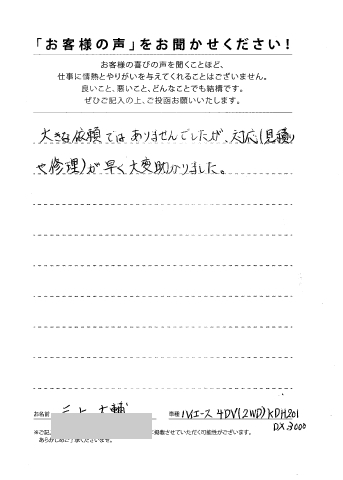 「お客様の声」をお聞かせください！
お客様の喜びの声を聞くことほど、
仕事に情熱とやりがいを与えてくれることはございません。
良いこと、悪いこと、どんなことでも結構です。
ぜひご記入の上、ご投函お願いいたします。
大きな依頼ではありませんでしたが、対応(見積り
や修理)が早く大変助かりました。
お名前
車種 ハイエース 4DV(2WD) KDH201
DX 3000
※ご記 に掲載させていただく可能性がございます。
あらかじめご了承くださいませ。